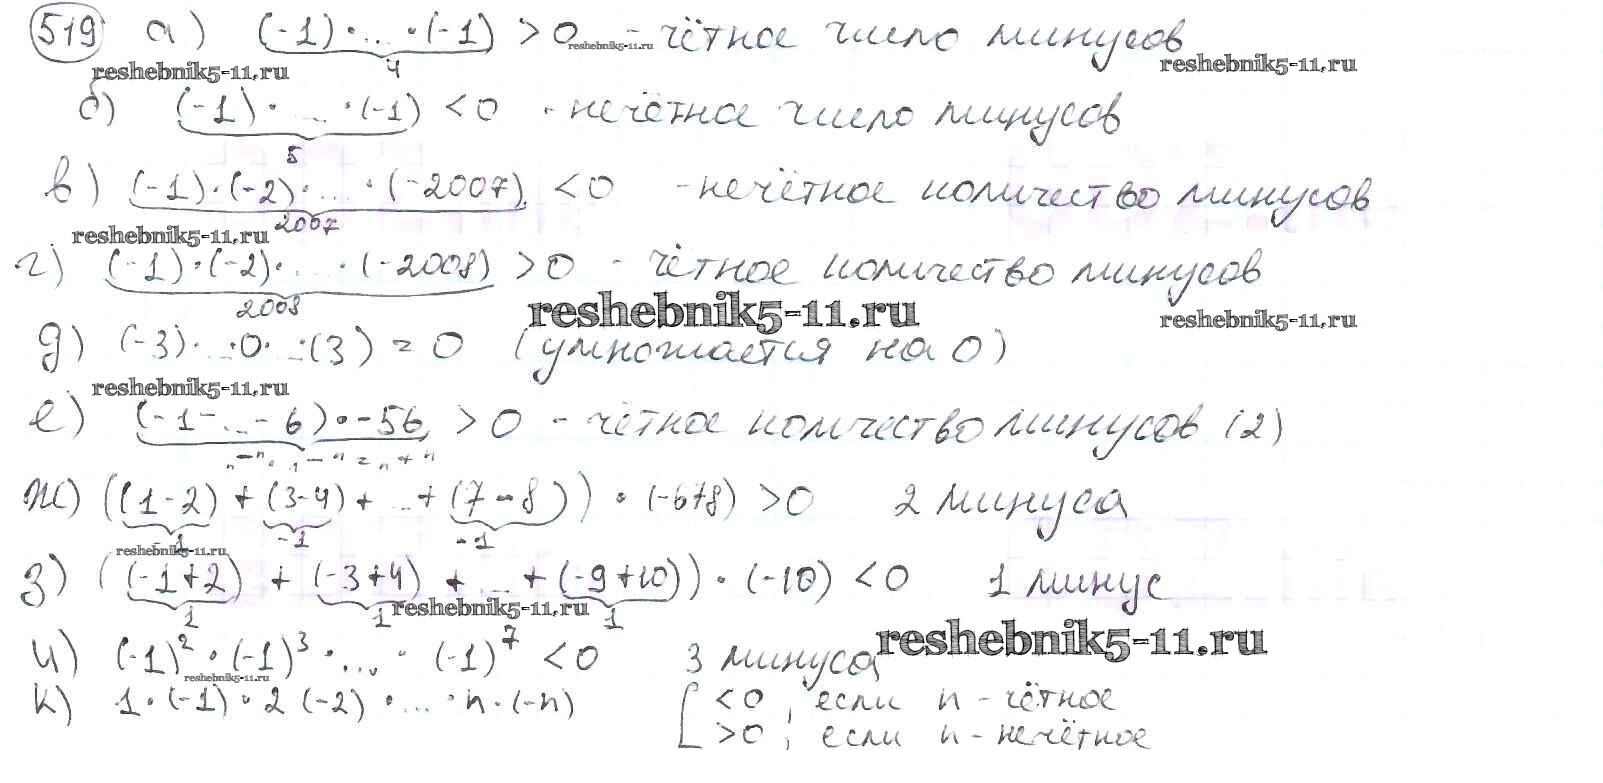 519 а) (-1)·...·(-1) > 0 - чётное число минусов
reshebnik5-11.ru
reshebnik5-11.ru 4 reshebnik5-11.ru
б) (-1)·...·(-1) < 0 - нечётное число минусов
5
в) (-1)·(-2)·...·(-2007) < 0 - нечётное количество минусов
2007
reshebnik5-11.ru
г) (-1)·(-2)·...·(-2008) > 0 - чётное количество минусов
2008
reshebnik5-11.ru reshebnik5-11.ru
д) (-3)·...·0·...·(3) = 0 (умножается на 0)
reshebnik5-11.ru
е) (-1-...-6)·-56 > 0 - чётное количество минусов (2)
"-"·"-"="+"
ж) ((1-2)+(3-4)+...+(7-8))·(-678) > 0 2 минуса
-1 -1 -1
reshebnik5-11.ru
з) ((-1+2)+(-3+4)+...+(-9+10))·(-10) < 0 1 минус
1 1 1
reshebnik5-11.ru
и) (-1)²·(-1)³·...·(-1)⁷ < 0 3 минуса
reshebnik5-11.ru
reshebnik5-11.ru
к) 1·(-1)·2(-2)·...·n·(-n) [ < 0, если n - чётное
> 0, если n - нечётное